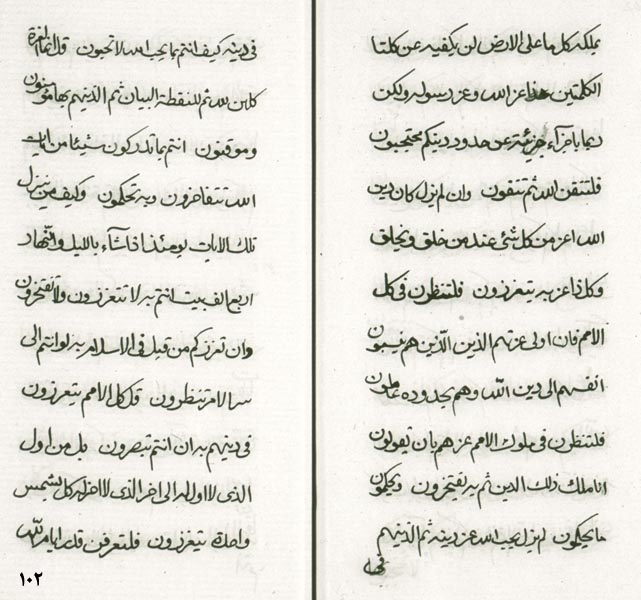 يملكنه كل ما على الارض لن يكفيه عن كلتا
الكلمتين هذا عز الله وعز رسوله ولكن
ربما باجزآء جزئية عن حدود دينكم محتجبون
فلتتقن الله ثم تتقون وان لم يزل كان دين
الله اعز من كل شئ عند من خلق ويخلق
وكل ذا عز به يتعززون فلتنظرن في كل
الامم فان اولى عزتهم الذين الذين هم ينسبون
انفسهم الى دين الله وهم بحدوده عاملون
فلتنظرن في ملوك الامم عزهم بان يقولون
انا ملك ذلك الدين ثم به لفتخرون ويحكمون
ما يحكمون لم يزل يحب الله عز دينه ثم الذينهم
فى دينه كيف انتم بما يحب الله لا تحبون قل انما العزة
كلهن لله ثم للنقطة البيان ثم الذينهم بها مؤمنون
وموقنون انتم بما تدركون شيئا من ايات
الله تتفاخرون وبه تحكمون وكيف من ينزل
تلك الايات يومئذ اذا شآء بالليل والنهار
اربع الف بيت انتم به لا تتعززون ولا تفتخرون
وان تعززكم من قبل في الاسلام به لو انتم الى
سر الامر تنظرون قل كل الامم يتعززون
في دينهم به ان انتم تبصرون بل من اول
الذى لا اول له الى اخر الذى لا اخر له كل بشمس
واحدة يتعززون فلتعرفن قدر ايام الله
١٠٢